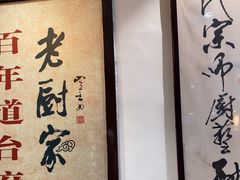 老厨家
百年道台府
代宗师厨艺